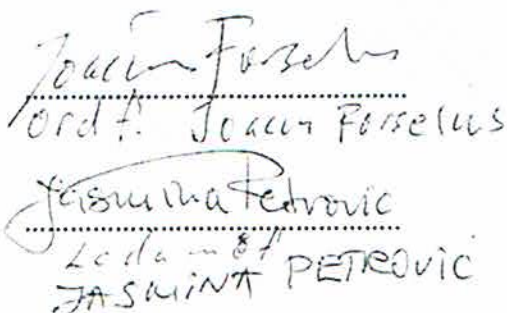 Joacim Forselus
ordf. Joacim Forselius
Jasmina Petrovic
JASMINA PETROVIC